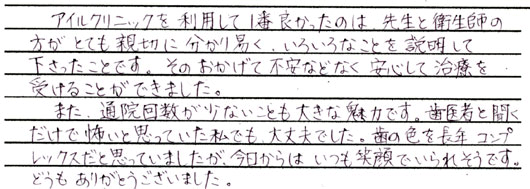 アイルクリニックを利用して1番良かったのは、先生と衛生師の
方がとても親切に分かり易く、いろいろなことを説明して
下さったことです。そのおかげで不安などなく安心して治療を
受けることができました。
また、通院回数が少ないことも大きな魅力です。歯医者と聞く
だけで怖いと思っていた私でも大丈夫でした。歯の色を長年コンプ
レックスだと思っていましたが、今日からはいつも笑顔でいられそうです。
どうもありがとうございました。